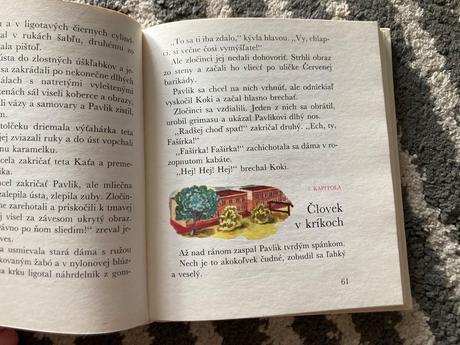 u a v ligotavých čiernych cylind-
val v rukách šabľu, druhému zo
pištoľ.
ústa do zlostných úškľabkov a
zakrádali po nekonečne dlhých
s natretými vyleštenými
enách sál viseli koberce a obrazy
vázy a samovary a Pavlík zistil,
tolčeku driemala výťahárka teta
j zviazali ruky a do úst vopchali
u karamelku.
zakričať teta Kaťa a preme-
čať Pavlík, ale mliečna
zalepila ústa, zlepila zuby. Zločinci
zarehotali a priskočili k tmavým
j visel za závesom ukrytý obraz.
vo po ňom sliedim!“ zreval da-
ves.
usmievala stará dáma s ružou
kovaným žabó a v nylonovej blúz-
a krku ligotal náhrdelník z gom-
„To sa ti iba zdalo,“ kývla hlavou. „Vy, chlap-
ci, si večne čosi vymýšľate!“
Ale zločinci jej nedali dohovoriť. Strhli obraz
zo steny a začali ho vliecť po uličke Červenej
barikády.
Pavlík sa chcel na nich vrhnúť, ale odniekiaľ
vyskočil Koki a začal hlasno brechať.
Zločinci sa vzrušili. Jeden z nich sa obrátil,
urobil grimasu a ukázal Pavlíkovi dlhý nos.
„Radšej choď spať!“ zakričal druhý. „Ech, ty,
Fašírka!“
„Fašírka! Fašírka!“ zachichotala sa dáma v ro-
zopnutom kabáte.
„Hej! Hej! Hej!“ brechal Koki.
7. KAPITOLA
Človek
v kríkoch
Až nad ránom zaspal Pavlík tvrdým spánkom.
Nech je to akokoľvek čudné, zobudil sa ľahký
a veselý.
61